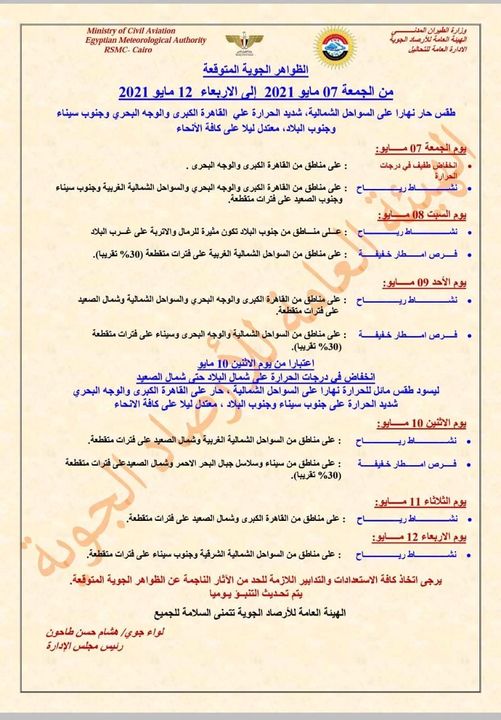 Ministry of Civil Aviation
Egyptian Meteorological Authority
RSMC- Cairo
وزارة الطيران المدنـــي
الهيئة العامة للأرصاد الجوية
الإدارة العامة للتحاليل
الظواهر الجوية المتوقعة
من الجمعة 07 مايو 2021 إلى الاربعاء 12 مايو 2021
طقس حار نهارا على السواحل الشمالية، شديد الحرارة علي القاهرة الكبرى والوجه البحري وجنوب سيناء
وجنوب البلاد، معتدل ليلا على كافة الأنحاء
يوم الجمعة 07 مـــايو:
• انخفاض طفيف في درجات الحرارة : على مناطق من القاهرة الكبرى والوجه البحرى .
• نشـــــاط ريـــــاح : على مناطق من القاهرة الكبرى والوجه البحري والسواحل الشمالية الغربية وجنوب سيناء
وجنوب الصعيد على فترات متقطعة.
يوم السبت 08 مـــايو:
• نشـــــاط ريـــــاح : علـــى مناطق من جنوب البلاد تكون مثيرة للرمال والاتربة على غـــرب البلاد
• فـــرص امـــطار خـفـيـفـة : على مناطق من السواحل الشمالية الغربية على فترات متقطعة (30% تقريبا).
يوم الأحد 09 مـــايو:
• نشـــــاط ريـــــاح : على مناطق من القاهرة الكبرى والوجه البحري والسواحل الشمالية وشمال الصعيد
على فترات متقطعة.
• فـــرص امـــطار خـفـيـفـة : على مناطق من القاهرة الكبرى والوجه البحرى وسيناء على فترات متقطعة
(30% تقريبا).
إعتبارا من يوم الاثنين 10 مايو
انخفاض في درجات الحرارة على شمال البلاد حتى شمال الصعيد
ليسود طقس مائل للحرارة نهارا على السواحل الشمالية ، حار على القاهرة الكبرى والوجه البحري
شديد الحرارة على جنوب سيناء وجنوب البلاد ، معتدل ليلا على كافة الانحاء
يوم الأثنين 10 مـــايو:
• نشـــــاط ريـــــاح : على مناطق من السواحل الشمالية الغربية وشمال الصعيد على فترات متقطعة.
• فـــرص امـــطار خـفـيـفـة : على مناطق من سيناء وسلاسل جبال البحر الاحمر وشمال الصعيدعلى فترات متقطعة
(30% تقريبا).
يوم الثلاثاء 11 مـــايو:
• نشـــــاط ريـــــاح : على مناطق من القاهرة الكبرى وشمال الصعيد على فترات متقطعة.
يوم الاربعاء 12 مـــايو:
• نشـــــاط ريـــــاح : على مناطق من السواحل الشمالية الشرقية وجنوب سيناء على فترات متقطعة.
يرجى اتخاذ كافة الاستعدادات والتدابير اللازمة للحد من الآثار الناجمة عن الظواهر الجوية المتوقعة.
يتم تحـديث التنبـؤ يـوميا
الهيئة العامة للأرصاد الجوية تتمنى السلامة للجميع
لواء جوي/ هشام حسن طاحون
رئيس مجلس الإدارة
الهيئة العامة للأرصاد الجوية